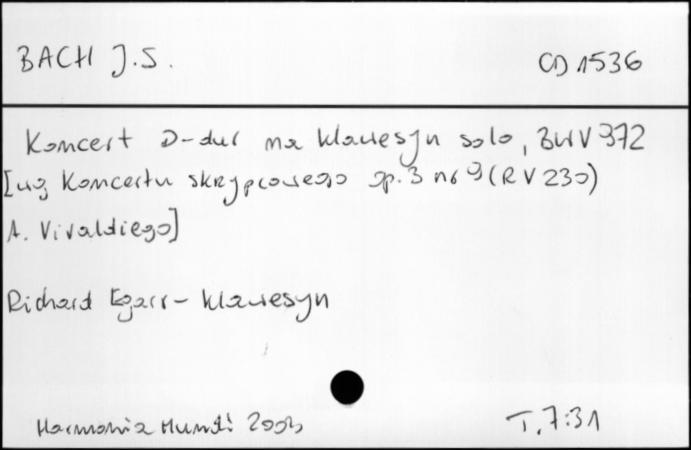 BACH J.S.
CD 1536
Koncert D-dur na klawesyn solo, BWV 972
[wg Koncertu skrzypcowego op. 3 nr 9 (RV 230)
A. Vivaldiego]
Richard Egarr – klawesyn
Harmonia Mundi
T. 7:31